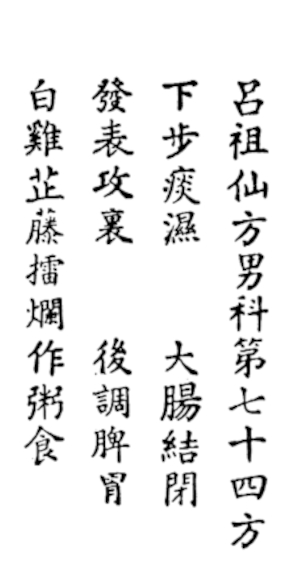 呂祖仙方男科第七十四方
下步痰濕 大腸結閉
發表攻裏 後調脾胃
白雞芷藤擂爛作粥食